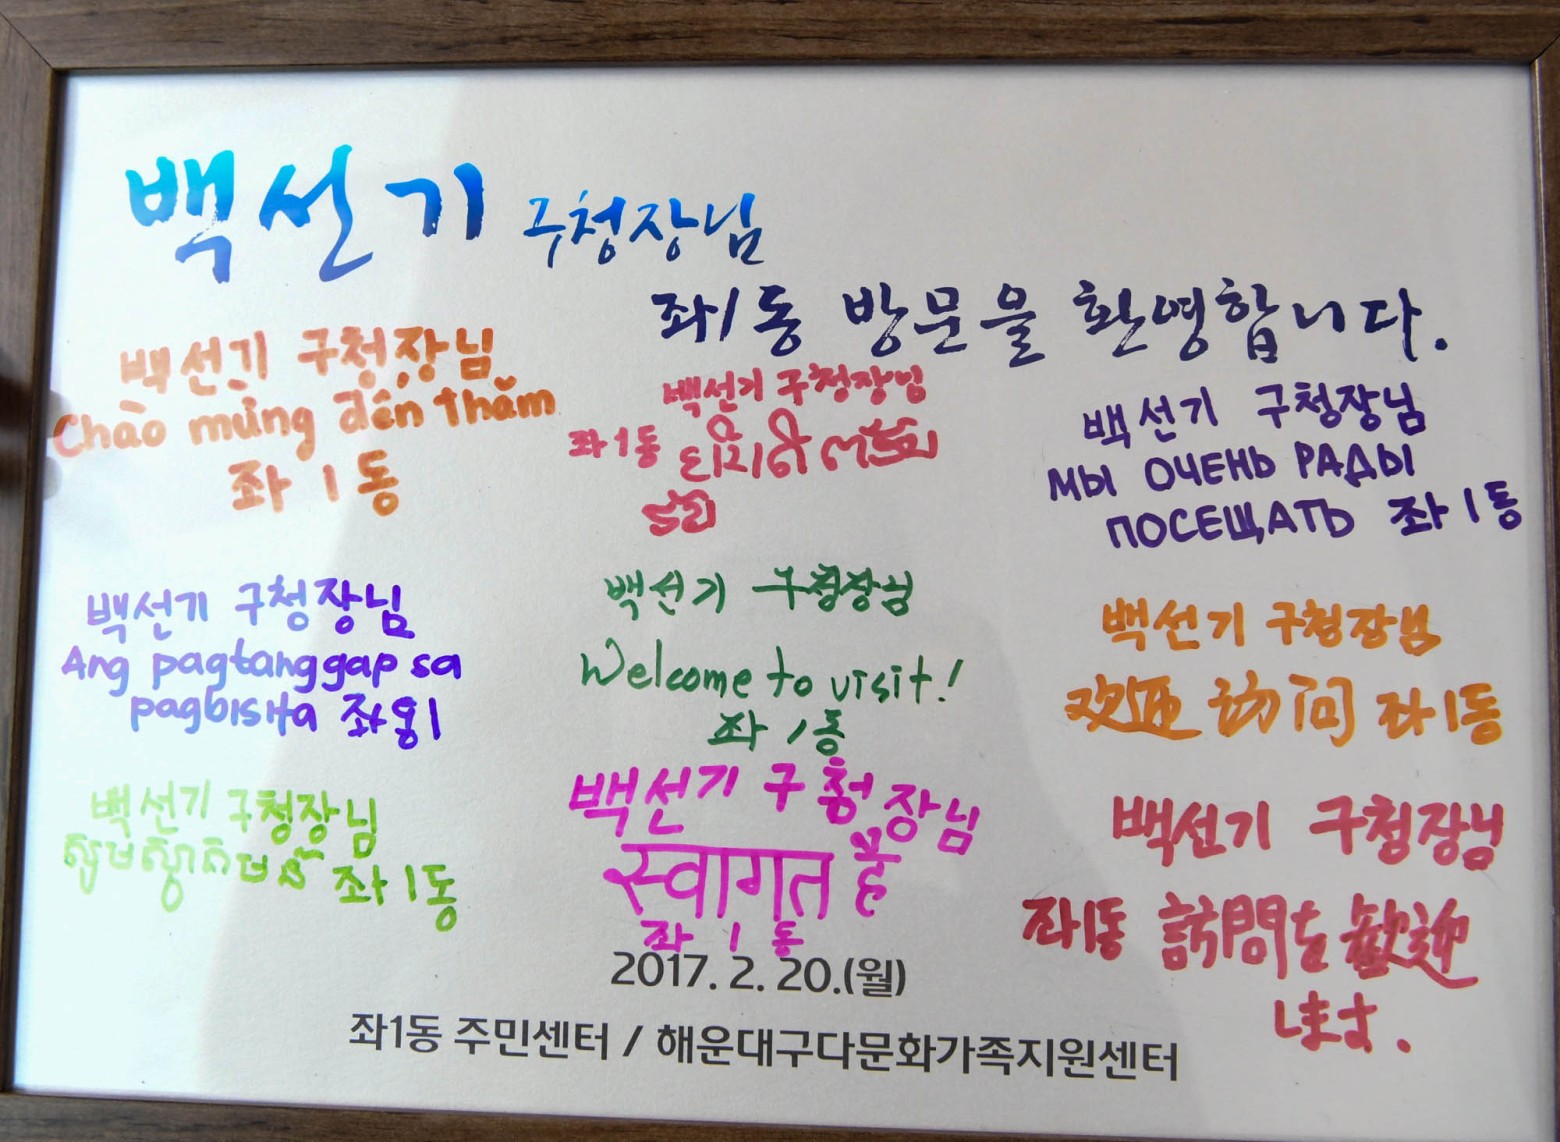 백선기 구청장님
좌1동 방문을 환영합니다.
백선기 구청장님
Chào mừng đến thăm
좌 1 동
백선기 구청장님
좌1동
백선기 구청장님
МЫ ОЧЕНЬ РАДЫ
ПОСЕЩАТЬ 좌1동
백선기 구청장님
Ang pagtanggap sa
pagbisita 좌동1
백선기 구청장님
Welcome to visit!
좌1동
백선기 구청장님
欢迎 访问 좌1동
백선기 구청장님
សូមស្វាគមន៍ 좌1동
백선기 구청장님
स्वागत हैं
좌 1 동
백선기 구청장님
좌1동 訪問を歓迎
します.
2017. 2. 20.(월)
좌1동 주민센터 / 해운대구다문화가족지원센터